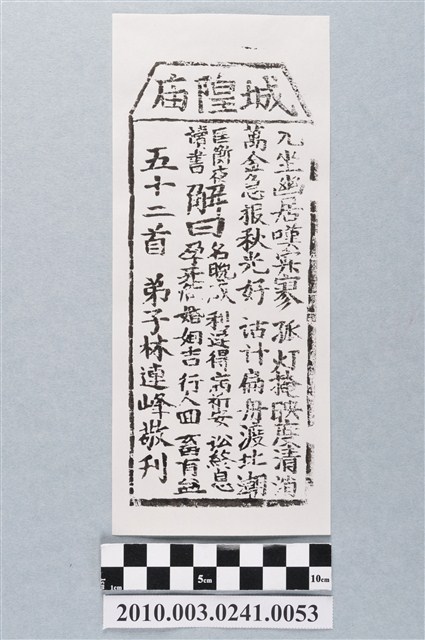 城隍庙
兀坐幽居嘆寂寥 孤灯掩映度清消
萬金忽报秋光好 活計扁舟渡北潮
匡衡夜
讀書
解曰
名晚成 利迟得 病祈安 訟終息
婚姻吉 行人回 畜有益
五十二首 弟子林連峰敬刊
1cm 5cm 10cm
2010.003.0241.0053